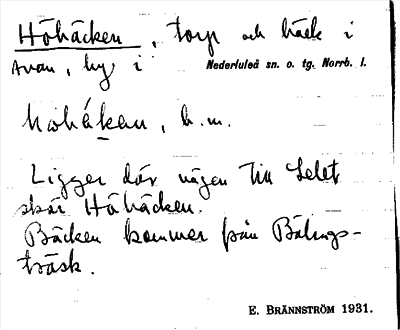 Höbäcken, torp och bäck i
Avan, by i Nederluleå sn. o. tg. Norrb. l.
b. m.
Ligger där vägen till Selet
skär Höbäcken.
Bäcken kommer från Bälings-
träsk.
E. BRÄNNSTRÖM 1931.